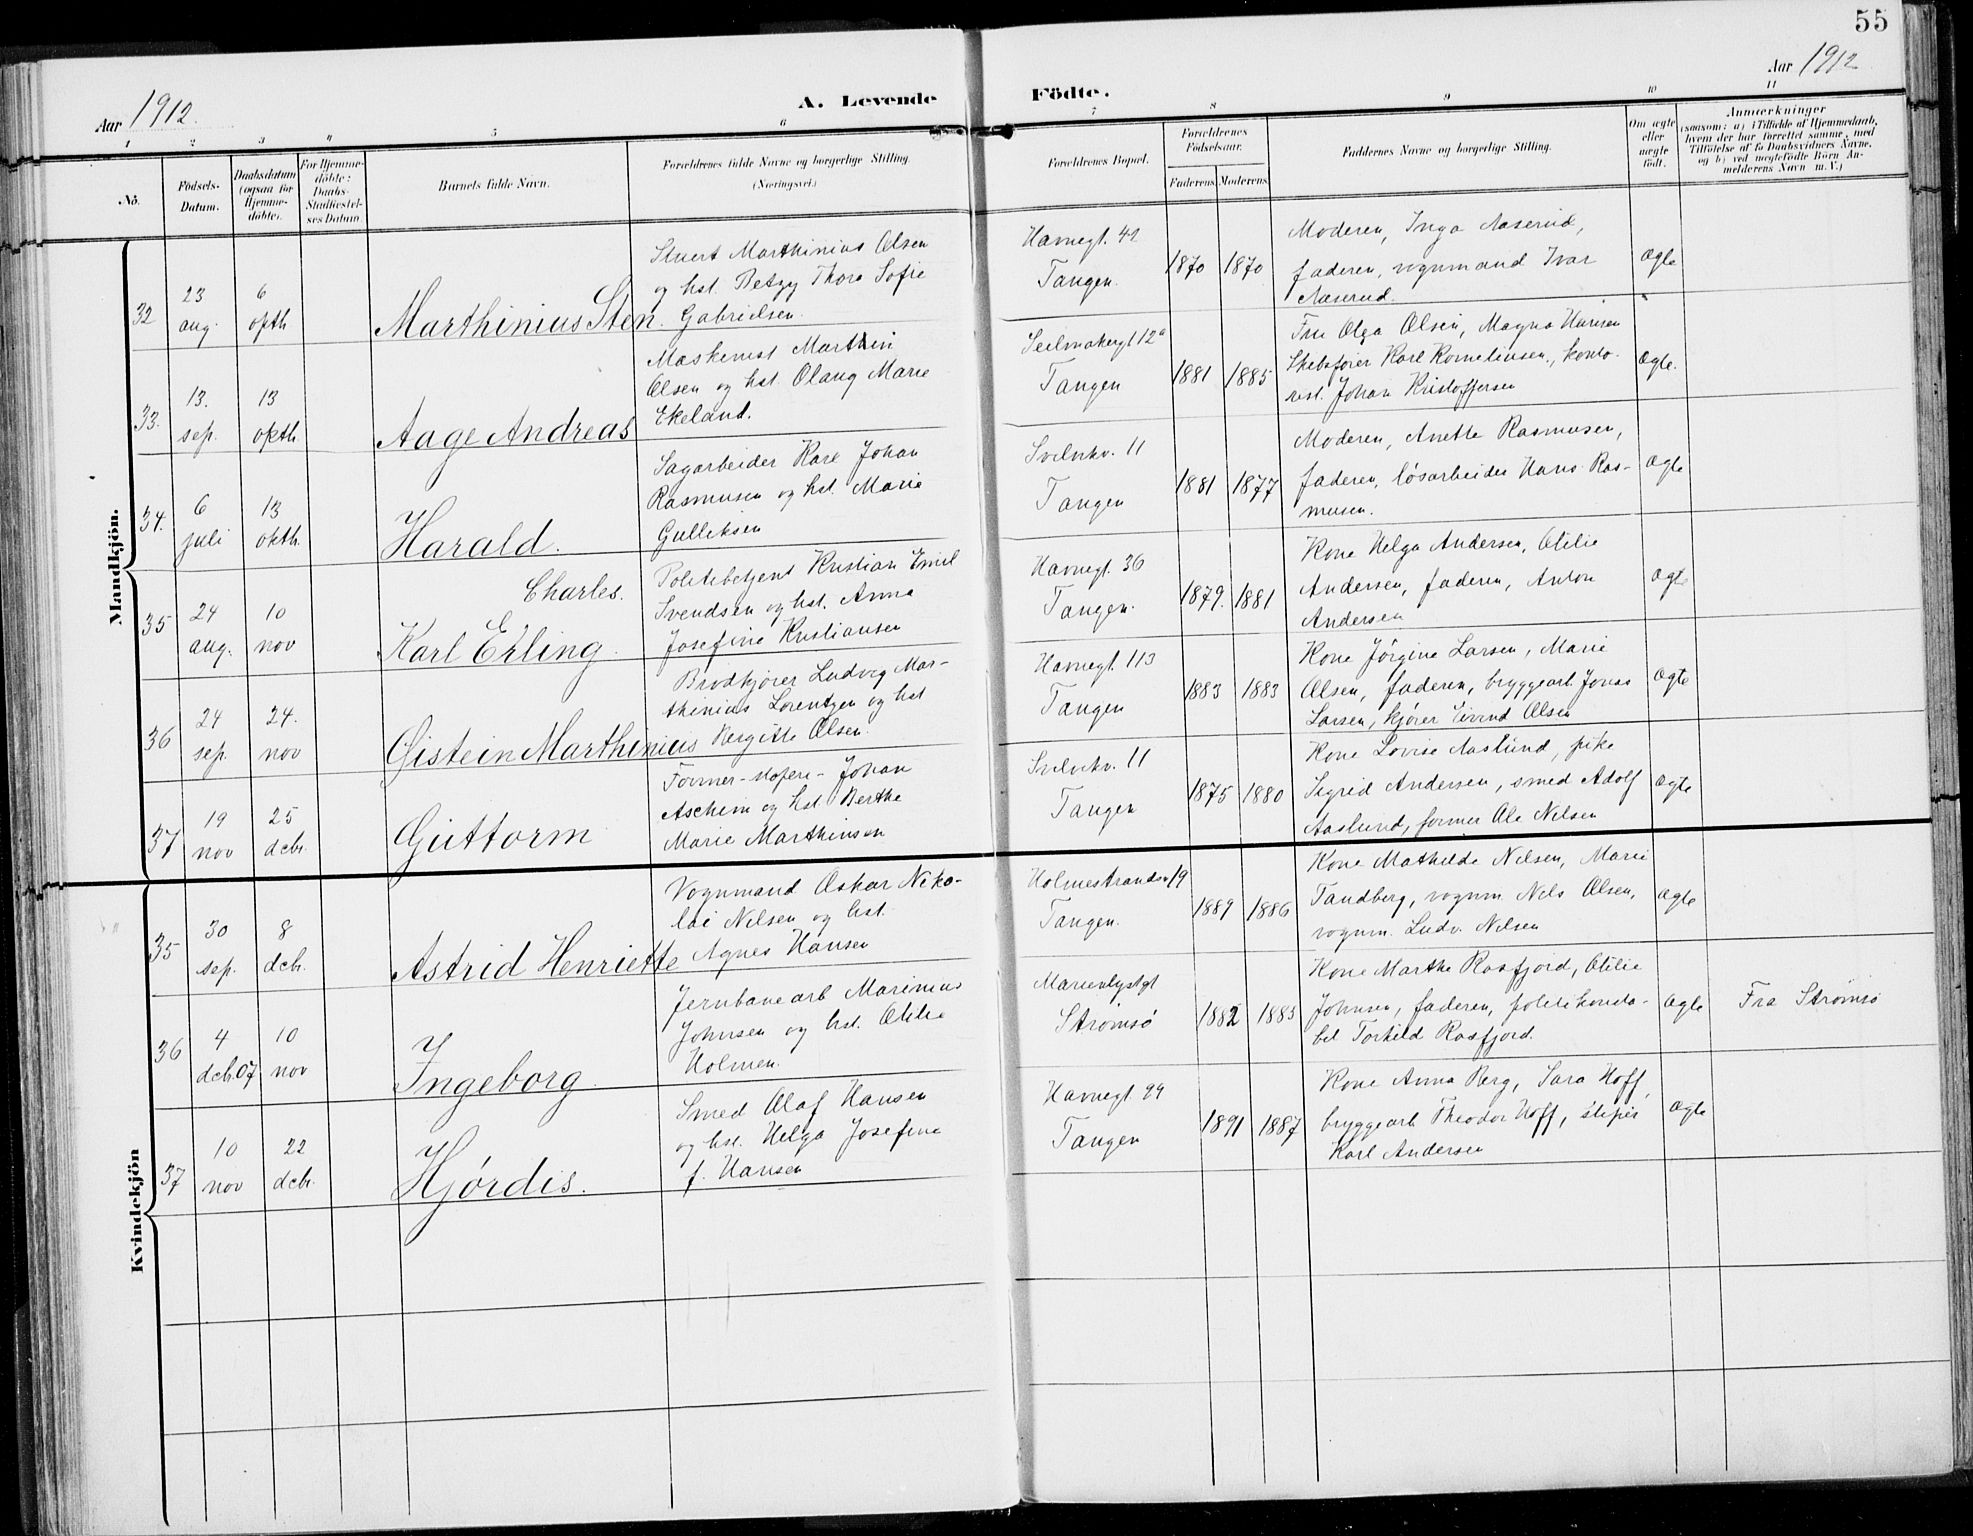 55
Aar 1912.
A. Levende Födte.
Aar 1912
1 2 3 4 5 6 7 8 9 10 11
No.
Födsels-
Datum.
Daabsdatum
(ogsaa for
Hjemme-
døbte).
For Hjemme-
döbte:
Daabs-
Stadfæstel-
ses Datum.
Barnets fulde Navn.
Forældrenes fulde Navne og borgerlige Stilling.
(Næringsvei.)
Forældrenes Bopæl.
Forældrenes
Födselsaar.
Faderens. Moderens.
Faddernes Navne og borgerlige Stilling.
Om ægte
eller
uægte
født.
Anmærkninger
(saasom: a) i Tilfælde af Hjemmedaab,
hvem der har forrettet samme, med
Tilföielse af to Daabsvidners Navne,
og b) ved uægtefödte Börn An-
melderens Navn m. V.)
Mandkjön.
32
23
aug.
6
okth
Marthinius Sten.
Stuert Marthinius Olsen
og hst. Betzy Thora Sofie
Gabrielsen.
Havnegt. 42
Tangen.
1870 1870
Moderen, Inga Naserud,
faderen, vognmand Ivar
Naserud.
Ægte
33.
13.
sep.
13
okth.
Aage Andreas
Maskinist Marthin
Olsen og hst. Olaug Marie
Ekeland.
Seilmakergt 12a
Tangen
1881 1885
Fru Olga Olsen, Magna Hansen
Skibsfører Karl Kornelinsen, konto-
rist. Johan Kristoffersen
Ægte.
34.
6
juli
13
okth.
Harald.
Sagarbeider Kare Johan
Rasmusen og hst. Marie
Gulliksen
Svelvikv. 11
Tangen
1881 1877
Moderen, Anette Rasmusen,
faderen, løsarbeider Hans Ras-
musen.
Ægte
35
24
aug.
10
nov
Charles.
Karl Erling.
Politibetjent Kristian Emil
Svendsen og hst. Anna
Josefine Kristiansen
Havnegt. 36
Tangen.
1879. 1881
Kone Helga Andersen, Otilie
Andersen, faderen, Anton
Andersen
Ægte
36
24
sep.
24.
nov
Gistein Marthinius
Brødkjører Ludvig Mar-
thinius Lorentzen og hst
Bergitte Olsen.
Havnegt. 113
Tangen
1883 1883
Kone Jörgine Larsen, Marie
Olsen, faderen, bryggearb. Jonas
Larsen, kjører Eivind Olsen
Ægte
37
19
nov
25
dcbr.
Guttorm
Former- Johan
Aschim og hst Berthe
Marie Marthinsen
Svelvikv. 11
Tangen
1875 1880
Kone Lovise Aaslund, pike
Sigrid Andersen, smed Adolf
Aaslund, former Ole Nilsen
Ægte
Kvindekjön
35
30
sep.
8
dcbr.
Astrid Henriette
Vognmand Oskar Niko-
lai Nilsen og hst.
Agnes Hansen
Holmestrandsv 19
Tangen.
1889 1886
Kone Mathilde Nilsen, Marie
Tandberg, vognm. Nils Olsen,
vognm. Ludv. Nilsen
Ægte
36
4
dcb.07
10
nov
Ingeborg
Jernbanearb Marinius
Johnsen og hst. Otilie
Holmen.
Marienlystgt
Strømsö
1882 1883
Kone Marthe Rosfjord, Otilie
Johnsen, faderen, politikonsta-
bel Torkild Rosfjord.
Ægte
Fra Strömsö
37
10
nov
22
dcbr.
Hjördis.
Smed Olaf Hansen
og hst. Helga Josefine
f. Hansen
Havnegt 99
Tangen
1891 1887
Kone Anna Berg, Sara Hoff,
bryggearb Theodor Hoff, sliper
Karl Andersen
Ægte